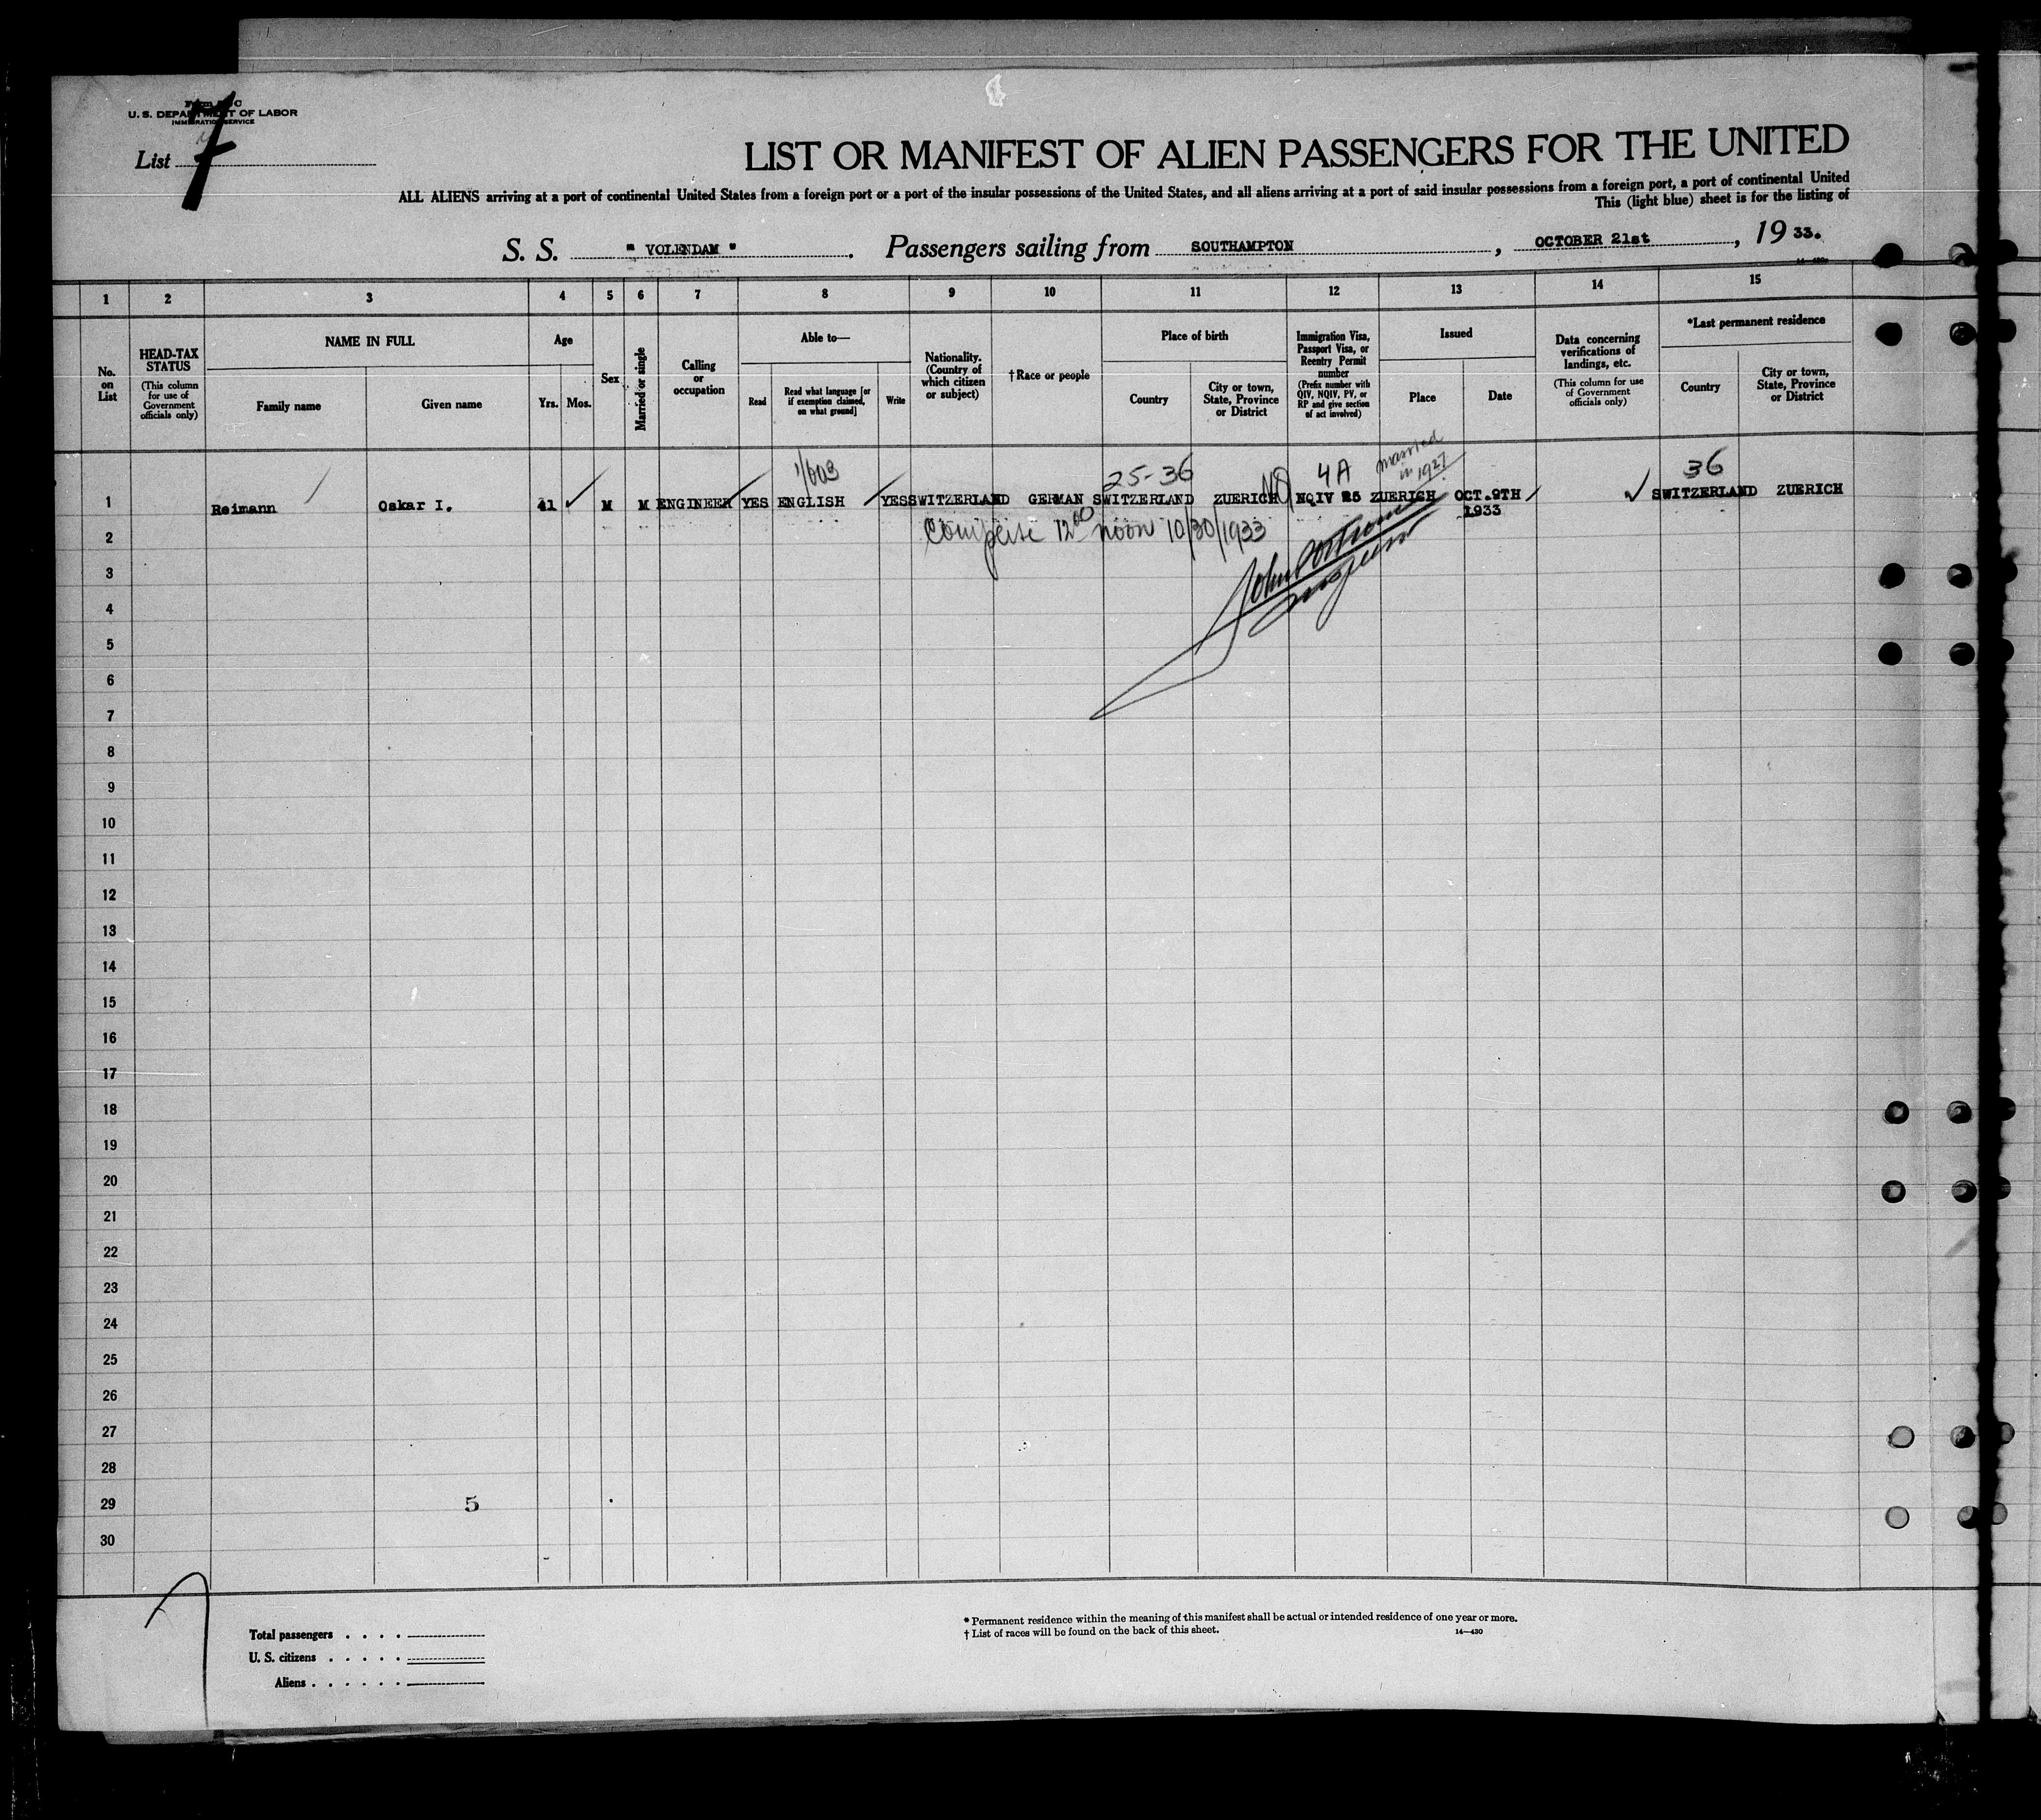 U. S. DEPARTMENT OF LABOR
IMMIGRATION SERVICE
List 7
LIST OR MANIFEST OF ALIEN PASSENGERS FOR THE UNITED
ALL ALIENS arriving at a port of continental United States from a foreign port or a port of the insular possessions of the United States, and all aliens arriving at a port of said insular possessions from a foreign port, a port of continental United
This (light blue) sheet is for the listing of
S. S. " VOLENDAM ". Passengers sailing from SOUTHAMPTON, OCTOBER 21st, 19 33.
1 2 3 4 5 6 7 8 9 10 11 12 13 14 15
No. on List
HEAD-TAX STATUS
(This column for use of Government officials only)
NAME IN FULL
Family name
Given name
Age
Yrs. Mos.
Sex
Married or single
Calling or occupation
Able to—
Read
Read what language [or if exemption claimed, on what ground]
Write
Nationality. (Country of which citizen or subject)
†Race or people
Place of birth
Country
City or town, State, Province or District
Immigration Visa, Passport Visa, or Reentry Permit number
(Prefix number with QIV, NQIV, PV, or RP and give section of act involved)
Issued
Place
Date
Data concerning verifications of landings, etc.
(This column for use of Government officials only)
*Last permanent residence
Country
City or town, State, Province or District
25-36 4A married in 1927 36
1 Reimann Oskar I. 41 M M ENGINEER YES ENGLISH YES SWITZERLAND GERMAN SWITZERLAND ZUERICH NQIV 25 ZUERICH OCT.9TH SWITZERLAND ZUERICH
1933
2 12 00 noon 10/30/1933
3
4
5
6
7
8
9
10
11
12
13
14
15
16
17
18
19
20
21
22
23
24
25
26
27
28
29 5
30
Total passengers
U. S. citizens
Aliens
* Permanent residence within the meaning of this manifest shall be actual or intended residence of one year or more.
† List of races will be found on the back of this sheet. 14—430